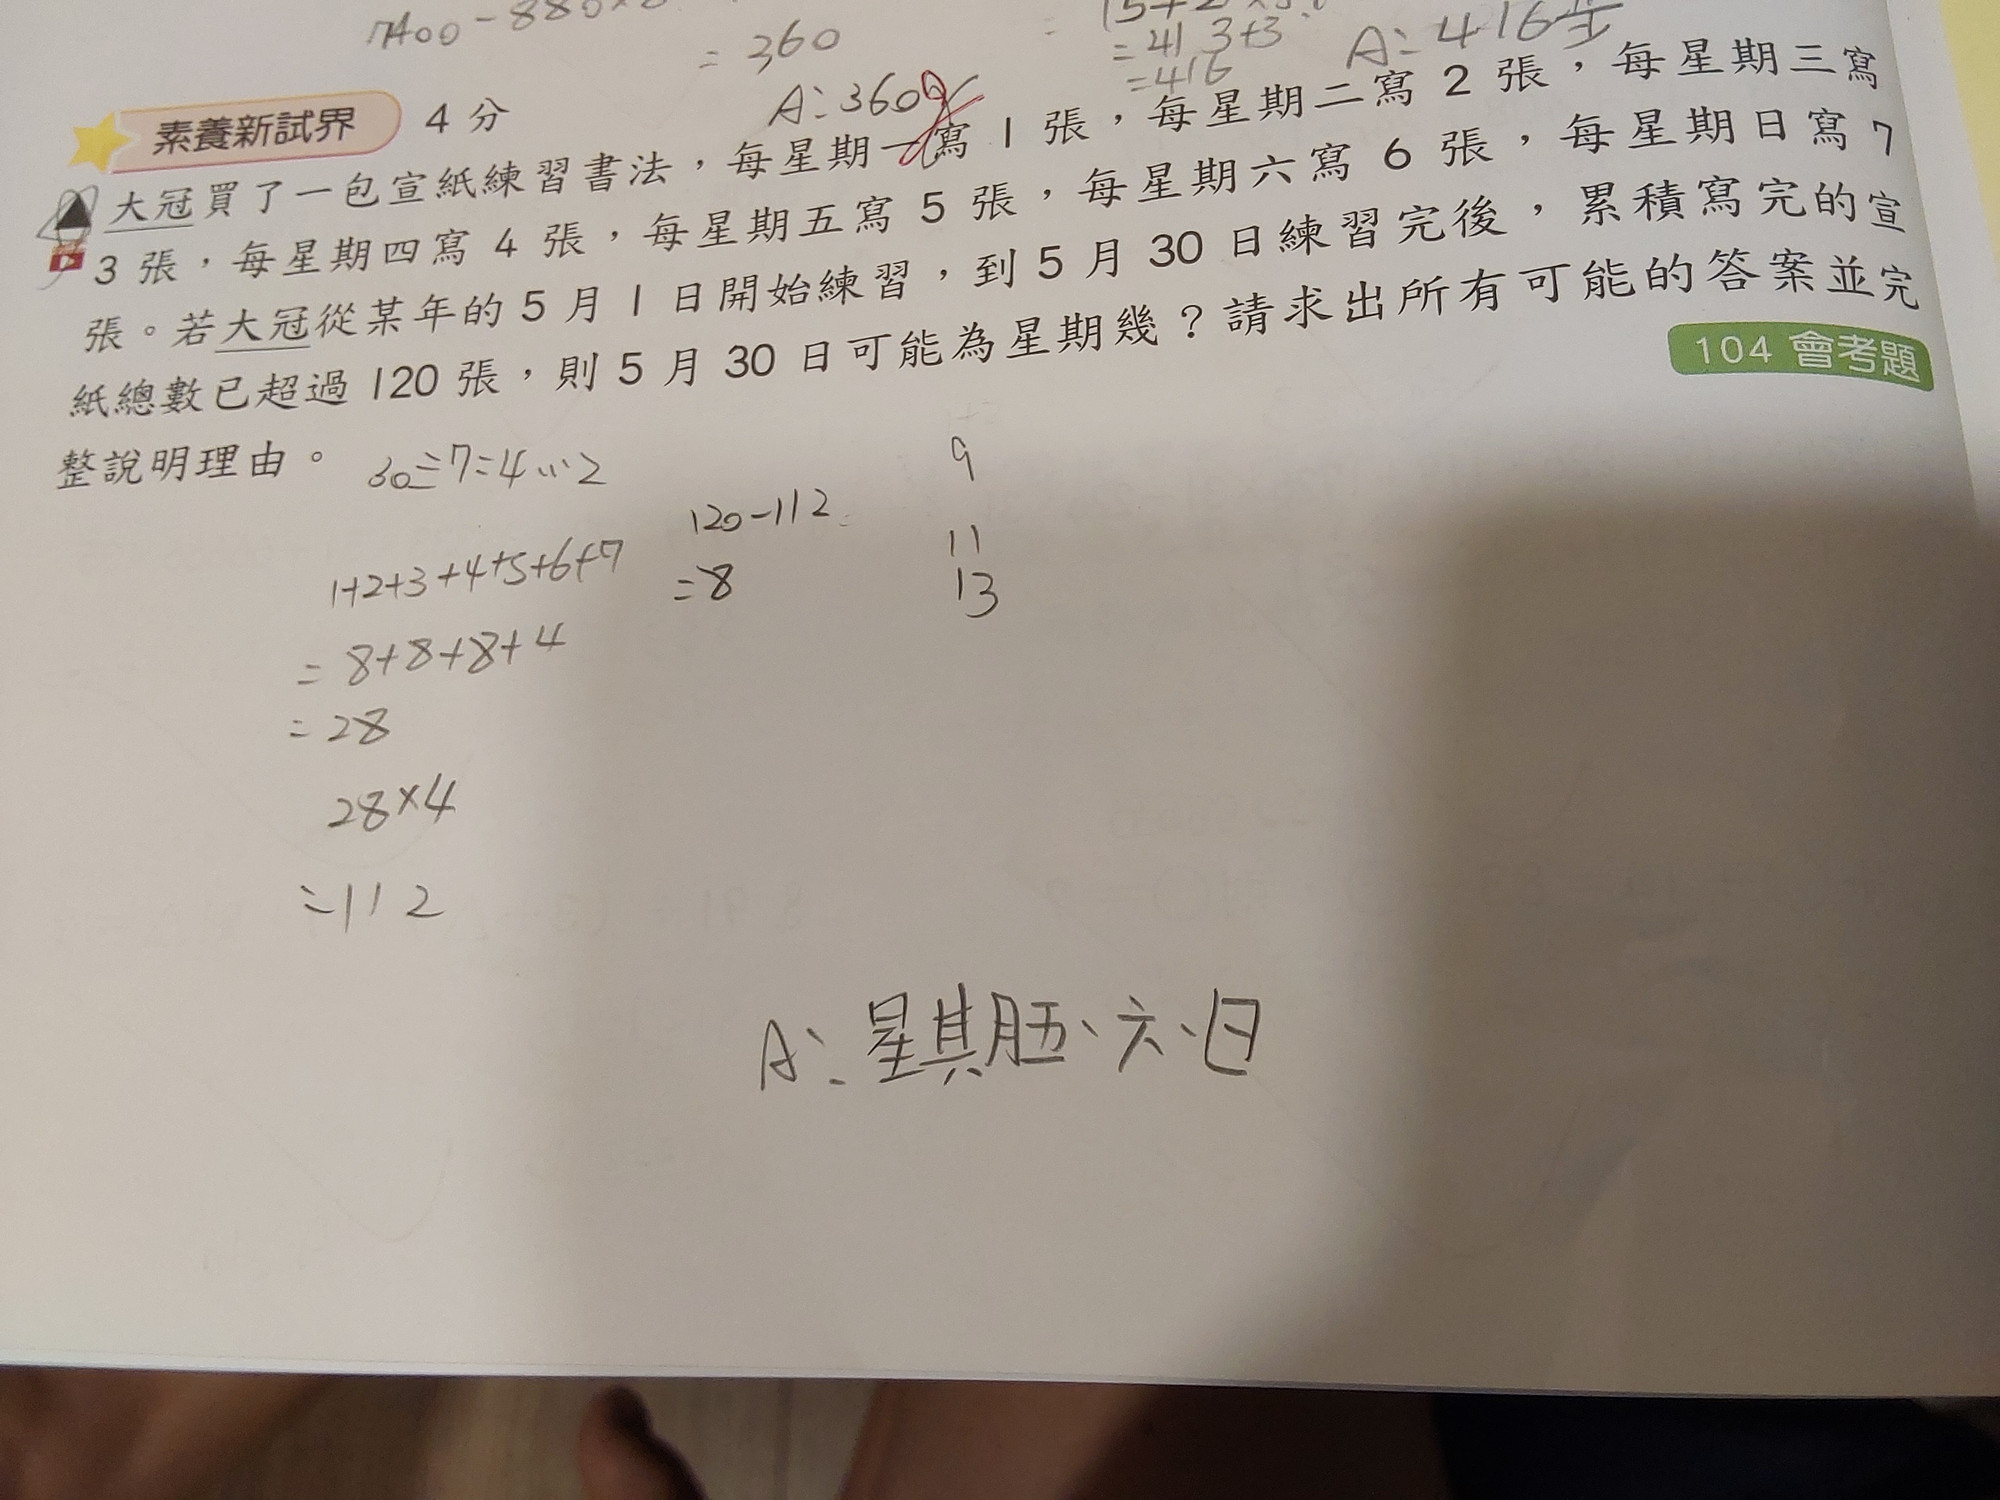 7400-880×8
= 360
A:360g
=413+3
=416
A:416步
素養新試界 4分
大冠買了一包宣紙練習書法，每星期一寫1張，每星期二寫2張，每星期三寫
3張，每星期四寫4張，每星期五寫5張，每星期六寫6張，每星期日寫7
張。若大冠從某年的5月1日開始練習，到5月30日練習完後，累積寫完的宣
紙總數已超過120張，則5月30日可能為星期幾？請求出所有可能的答案並完
整說明理由。
104會考題
30÷7=4…2
1+2+3+4+5+6+7
=8+8+8+4
=28
28×4
=112
120-112
=8
9
11
13
A:星其月五、六、日